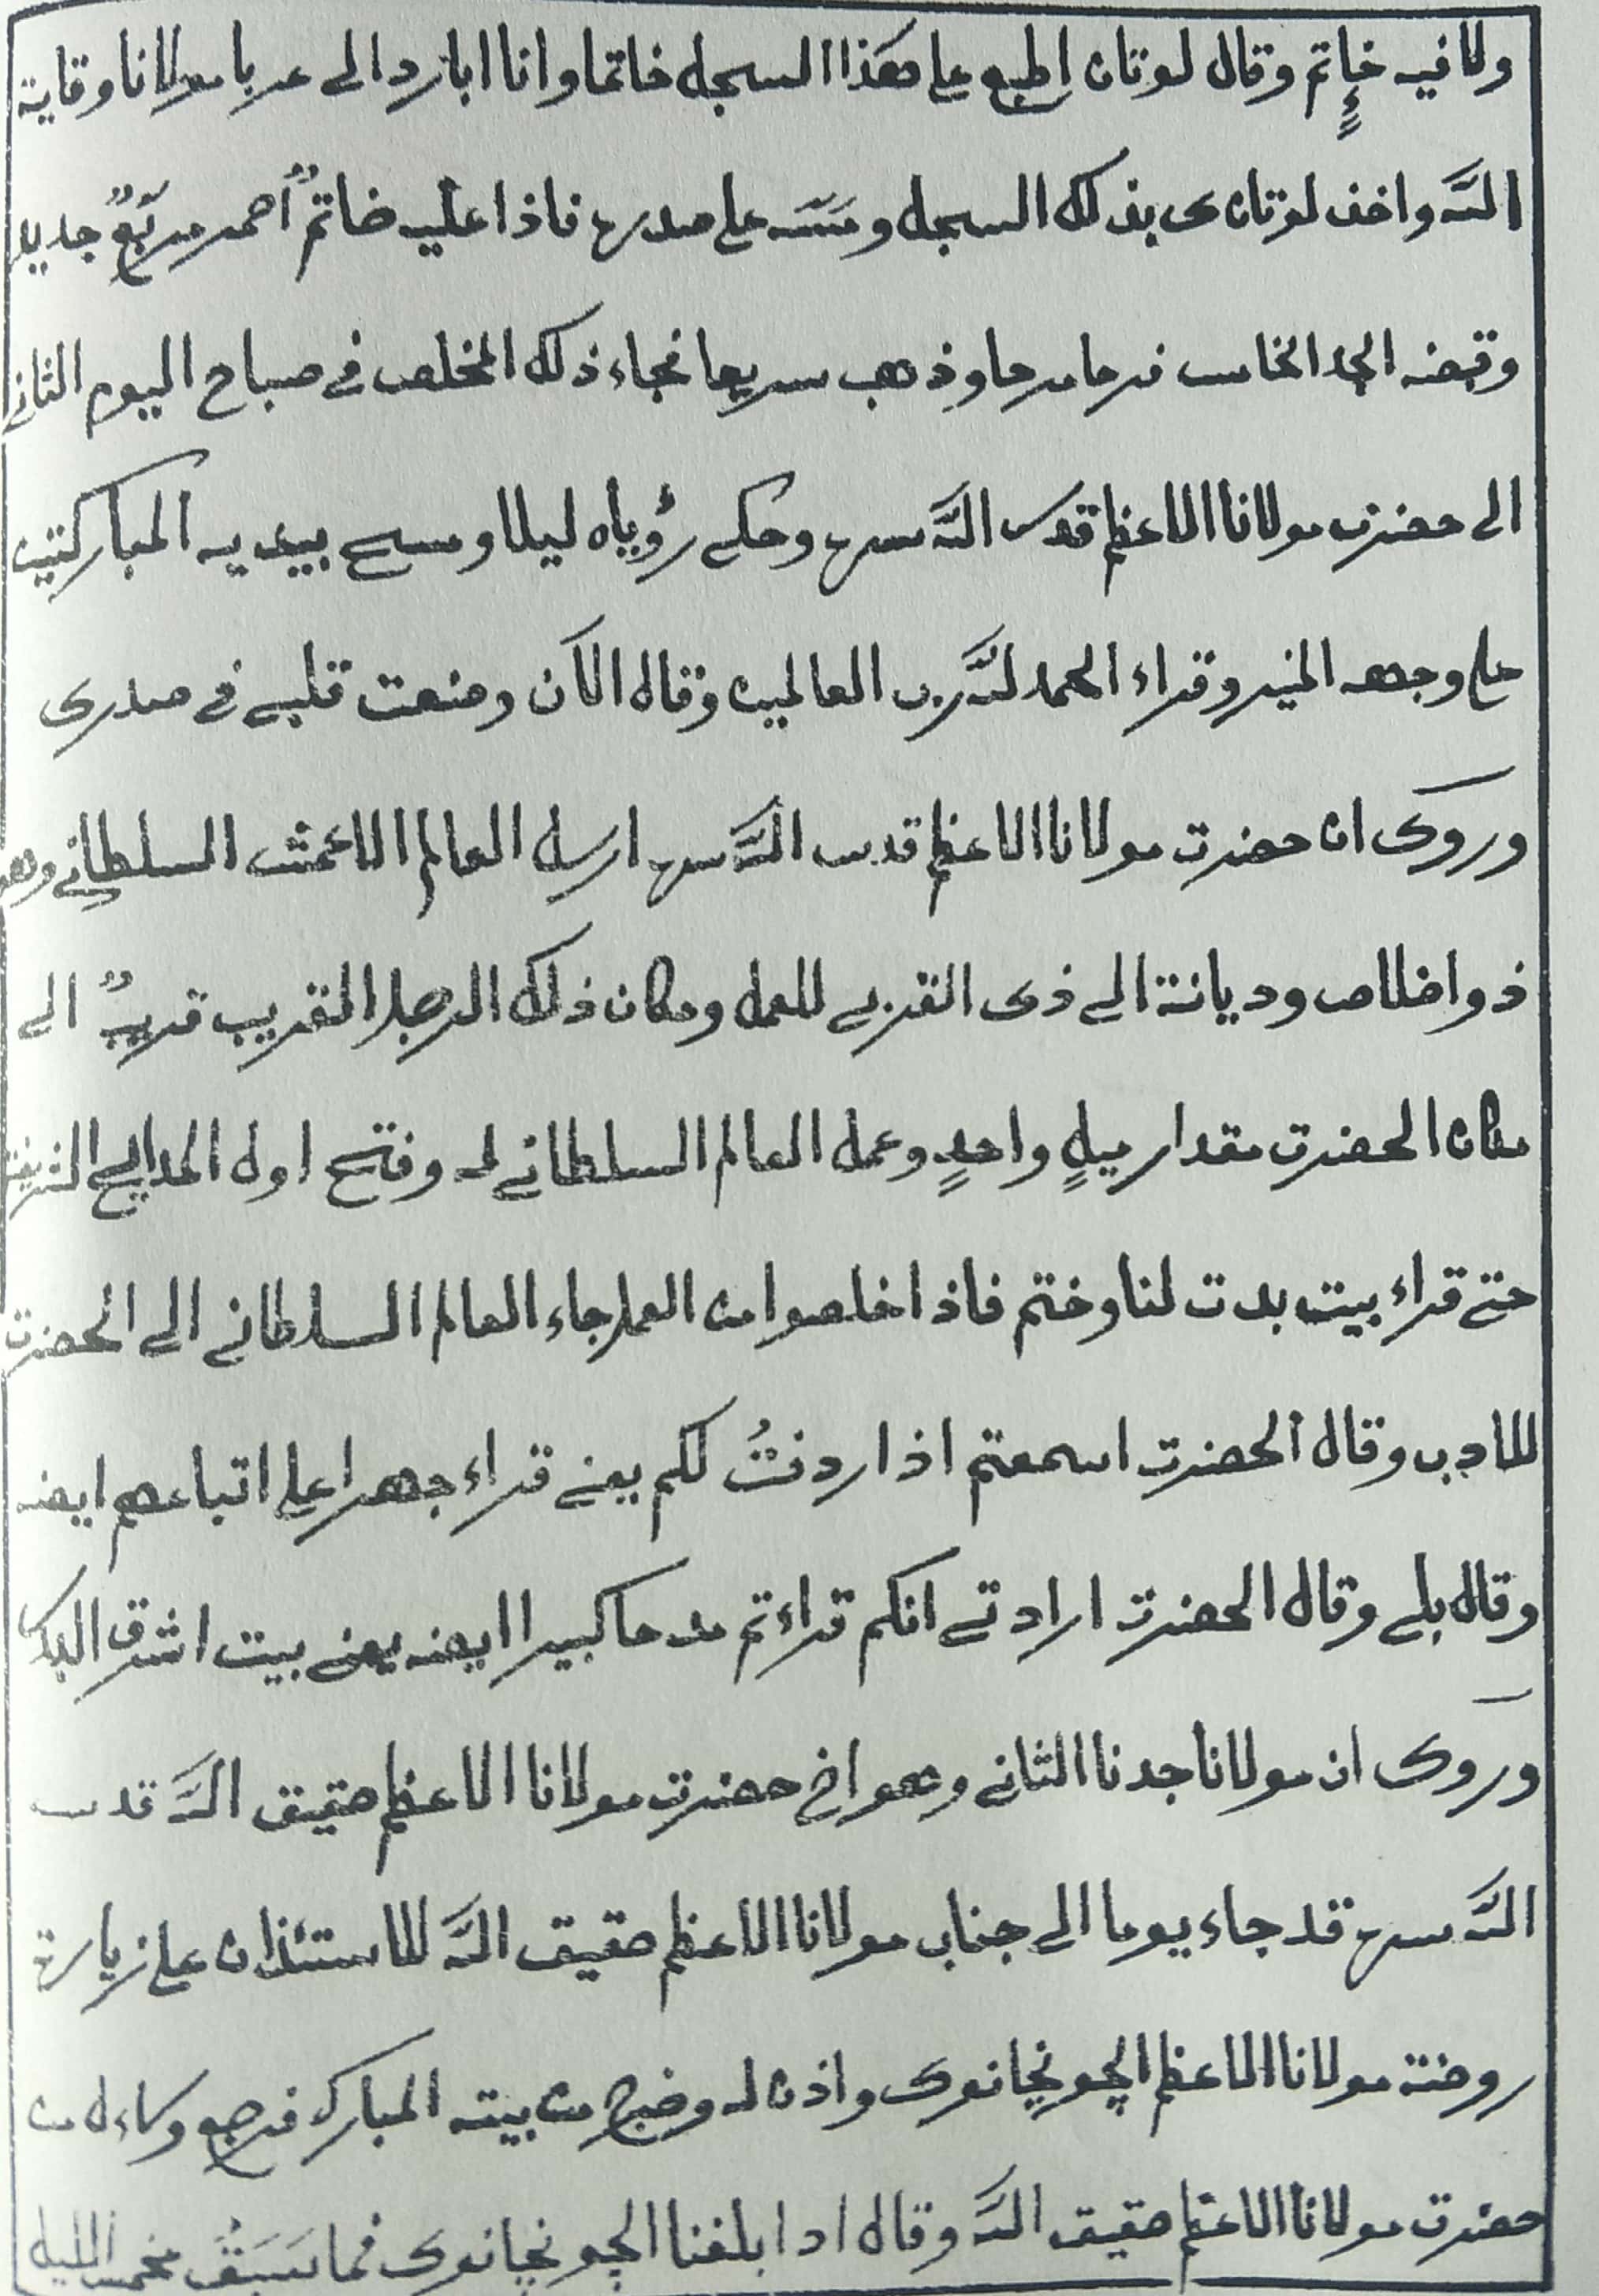 ولا فيه خاتم وقال لوتان اطبع على هكذا السجل خاتما وانا ابازرد الى عربا مولانا وقاية
الله واخذ لوتان ى بذلك السجل ومسه على صدره فاذا عليه خاتمٌ أحمر مربّعٌ جديد
وقبضه الجد الخاس فرحا مرحا وذهب سريعا فجاء ذلك المخلص فى صباح اليوم الثانى
الى حضرت مولانا الاعظم قدس الله سره وحكى رؤياه ليلا ومسح بيديه المباركتين
على وجهه المنير وقراء الحمد لله رب العالمين وقال الآن وضعت قلبى فى صدرى
وروى ان حضرت مولانا الاعظم قدس الله سره ارسل العالم الاعمش السلطانى وهو
ذو اخلاص وديانة الى ذى القربى للعمل ومكان ذلك الرجل القريب قريبٌ الى
مكان الحضرت مقدار ميلٍ واحدٍ وعمل العالم السلطانى له وفتح اول المدايح الشريفة
حتى قراء بيت بدت لنا وختم فاذا خلصوا من العمل جاء العالم السلطانى الى الحضرت
للادب وقال الحضرت اسمعتم اذا ردفتُ لكم يعنى قراء جهرا على اتباعهم ايضه
وقال بلى وقال الحضرت ارادتى انكم قراءتم مدحا كبيرا ايضه يعنى بيت اشرق البدر
وروى ان مولانا جدنا الثانى وهو اخ حضرت مولانا الاعظم حقيق الله قدس
الله سره قد جاء يوما الى جناب مولانا الاعظم حقيق الله للاستئذان على زيارة
روضة مولانا الاعظم الچونچانوى واذن له وخرج من بيته المبارك فرجع وساءل من
حضرت مولانا الاعظم حقيق الله وقال اذا بلغنا الچونچانوى فما سبق الليل